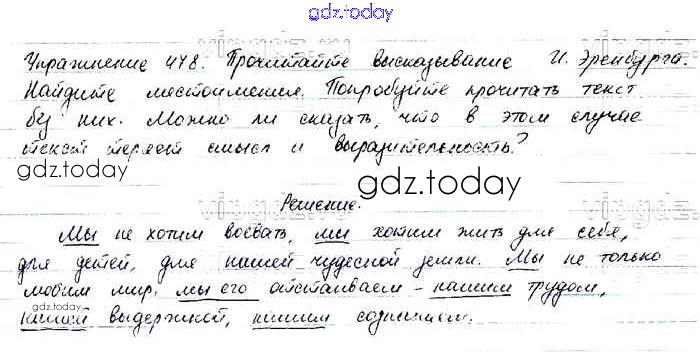 gdz.today
Упражнение 478. Прочитайте высказывание И. Эренбурга.
Найдите местоимения. Попробуйте прочитать текст
без них. Можно ли сказать, что в этом случае
текст теряет смысл и выразительность?
gdz.today
gdz.today
Решение.
Мы не хотим воевать, мы хотим жить для себя,
для детей, для нашей чудесной земли. Мы не только
любим мир, мы его отстаиваем – нашим трудом,
нашей выдержкой, нашим сознанием.